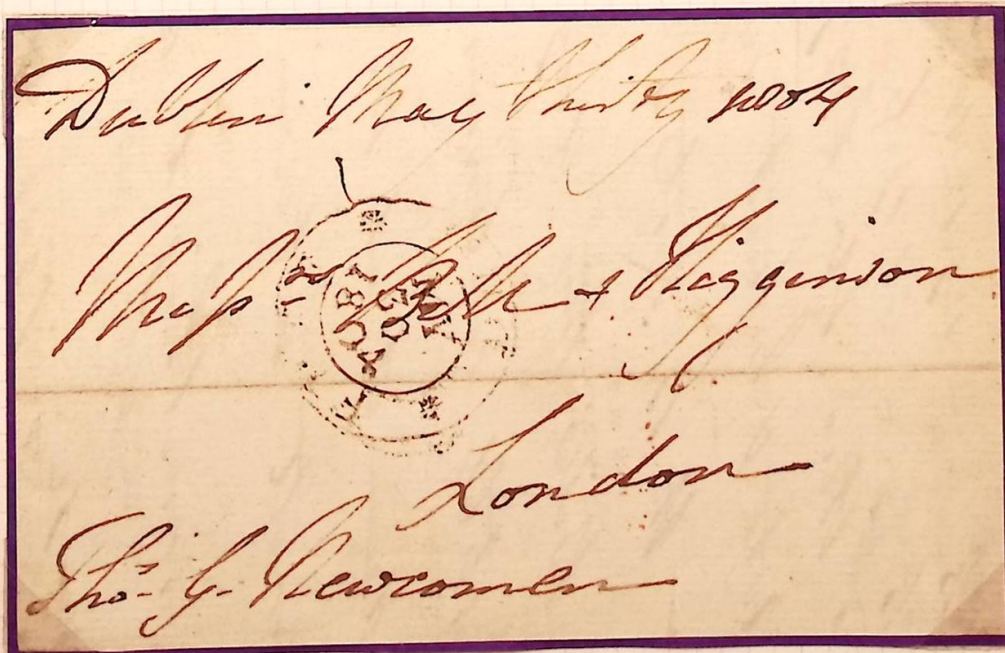 Dublin May thirty 1804
Messrs & Higginson
London
Thos. G. Newcomen
1804